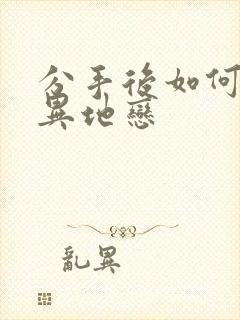 分手後如何
異地戀
亂異